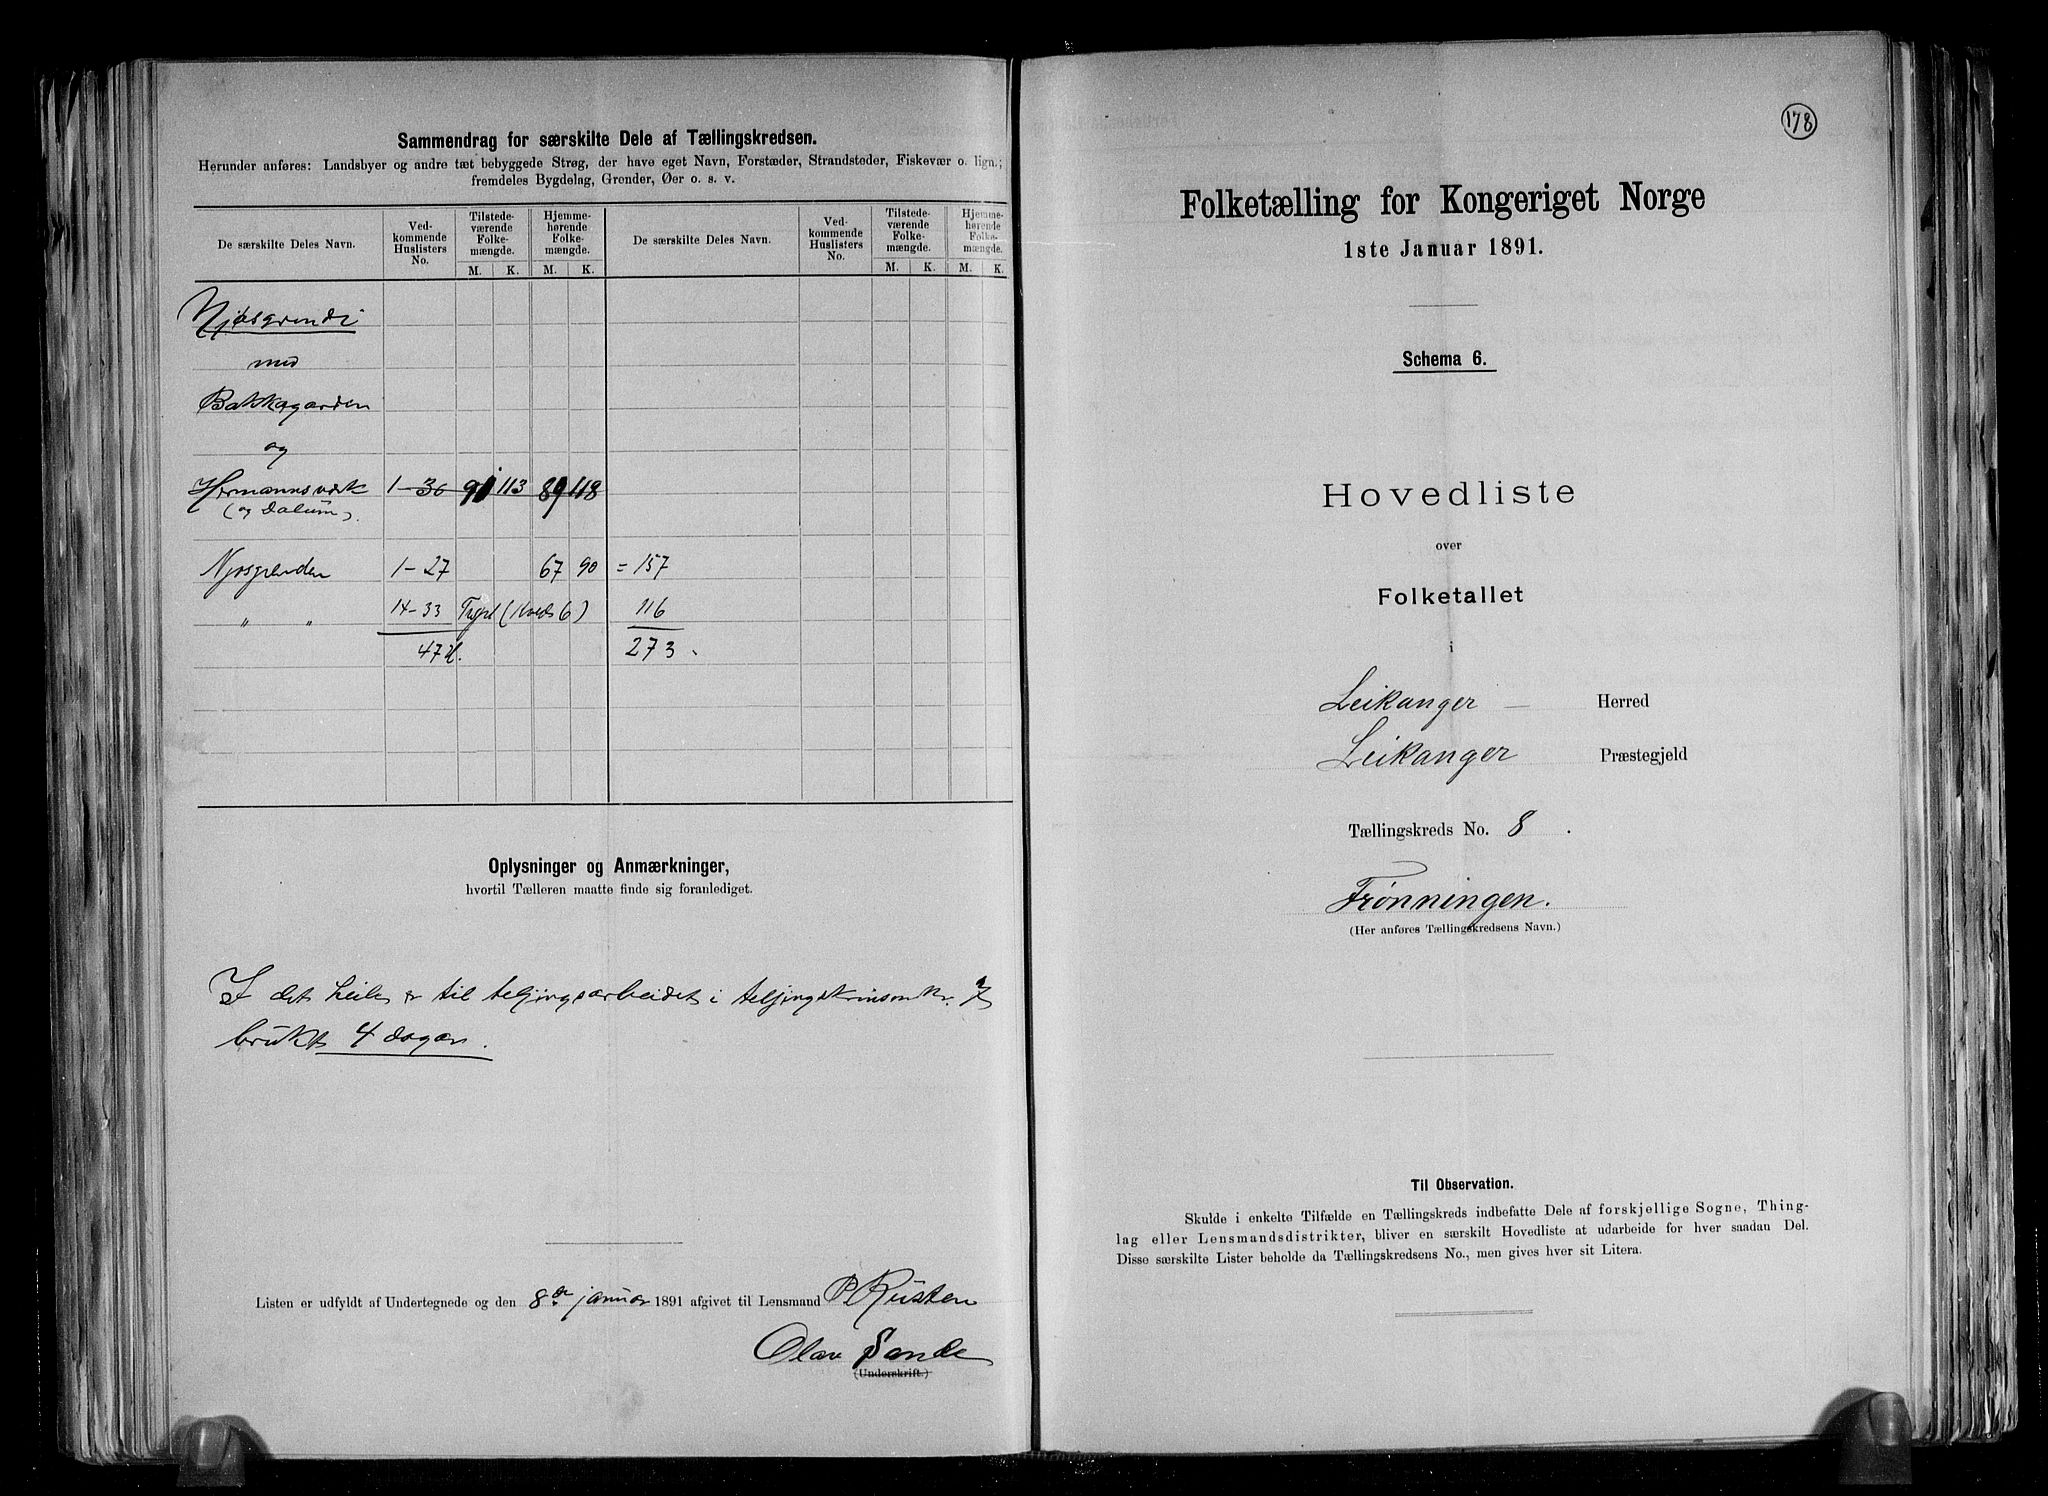 Sammendrag for særskilte Dele af Tællingskredsen.
Herunder anføres: Landsbyer og andre tæt bebyggede Strøg, der have eget Navn, Forstæder, Strandsteder, Fiskevær o. lign.;
fremdeles Bygdelag, Grender, Øer o. s. v.
De særskilte Deles Navn.
Ved-
kommende
Huslisters
No.
Tilstede-
værende
Folke-
mængde.
Hjemme-
hørende
Folke-
mængde.
De særskilte Deles Navn.
Ved-
kommende
Huslisters
No.
Tilstede-
værende
Folke-
mængde.
Hjemme-
hørende
Folke-
mængde.
M. K. M. K. M. K. M. K.
Njøsgrendi
med
Bakkagarden
og
Hermannsverk 1-30 91 113 89 118
(og Dalum).
Njøsgrenden 1-27 67 90 = 157
" " 14-33 (Kreds 6) 116
47 273
Oplysninger og Anmærkninger,
hvortil Tælleren maatte finde sig foranlediget.
I det heile er til teljingsarbeidet i teljingskrinsen nr. 7
brukt 4 dagar.
Listen er udfyldt af Undertegnede og den 8de januar 1891 afgivet til Lensmand P. Rusten
Olav Sande
(Underskrift.)
178
Folketælling for Kongeriget Norge
1ste Januar 1891.
Schema 6.
Hovedliste
over
Folketallet
i
Leikanger Herred
Leikanger Præstegjeld
Tællingskreds No. 8.
Frønningen.
(Her anføres Tællingskredsens Navn.)
Til Observation.
Skulde i enkelte Tilfælde en Tællingskreds indbefatte Dele af forskjellige Sogne, Thing-
lag eller Lensmandsdistrikter, bliver en særskilt Hovedliste at udarbeide for hver saadan Del.
Disse særskilte Lister beholde da Tællingskredsens No., men gives hver sit Litera.